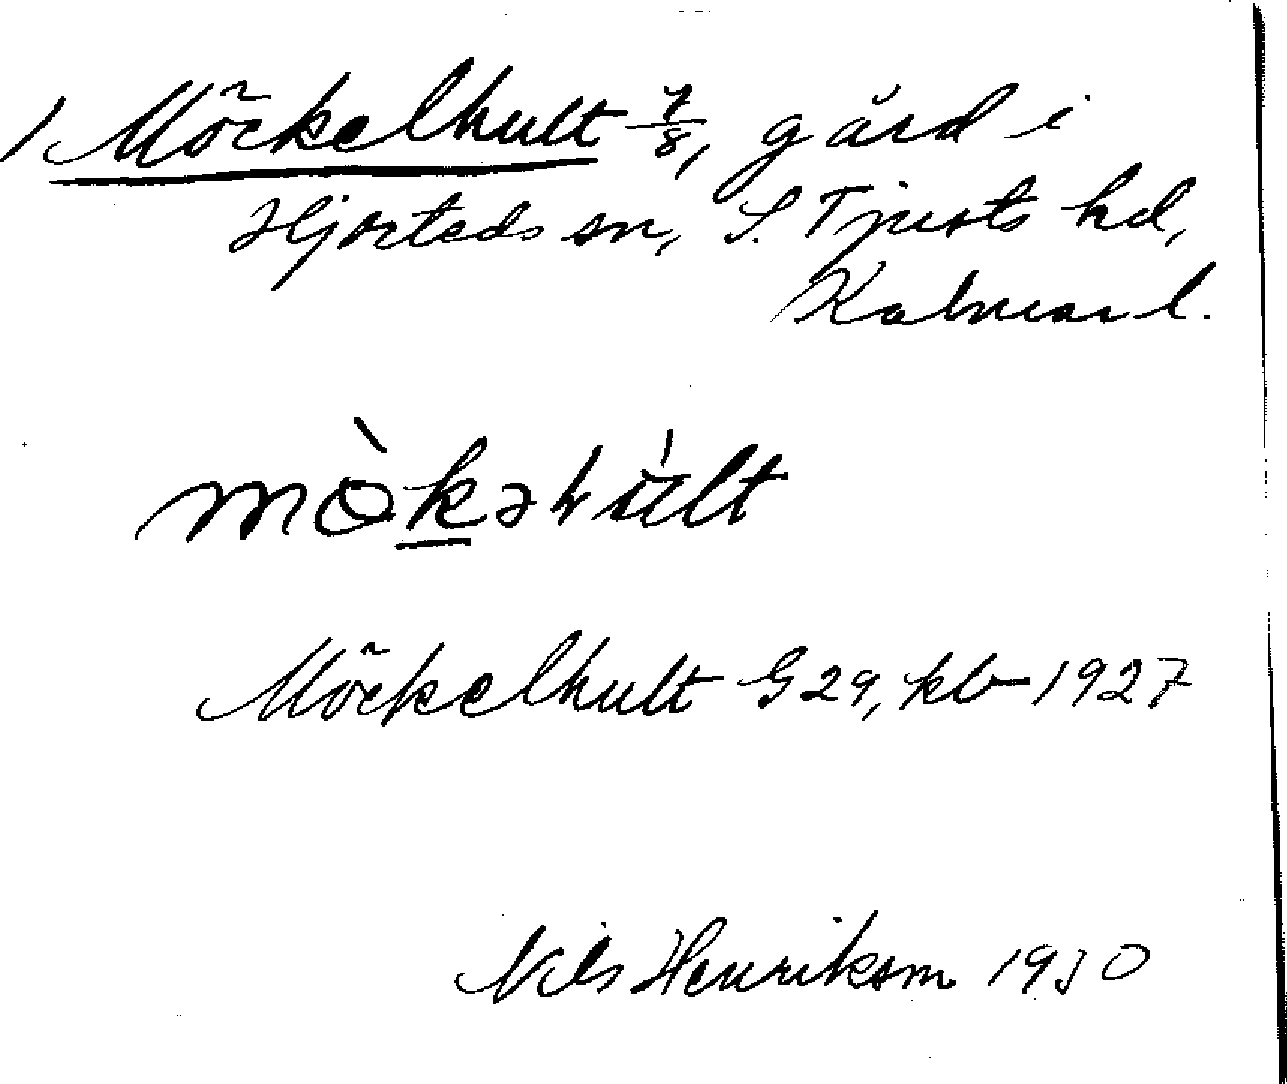 1 Möckelhult 7/8, gård i
Hjorteds sn, S. Tjusts hd,
Kalmar l.
mò̱kəhúlt
Möckelhult G 29, kb 1927
Nils Henrikson 1930